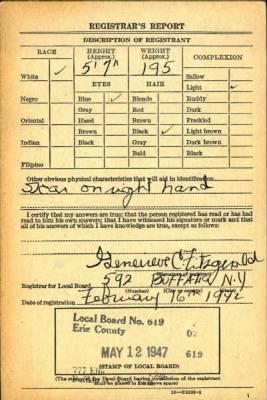 REGISTRAR'S REPORT
DESCRIPTION OF REGISTRANT
RACE HEIGHT (Approx.) WEIGHT (Approx.) COMPLEXION
White ✓ 5'7" 195 Sallow
Light ✓
EYES HAIR
Negro Blue ✓ Blonde Ruddy
Gray Red Dark
Oriental Hazel Brown Freckled
Brown Black ✓ Light brown
Indian Black Gray Dark brown
Bald Black
Filipino
Other obvious physical characteristics that will aid in identification
Scar on right hand
I certify that my answers are true; that the person registered has read or has had read to him his own answers; that I have witnessed his signature or mark and that all of his answers of which I have knowledge are true, except as follows:
Genevieve C Fitzgerald
(Signature of registrar)
Registrar for Local Board 592 BUFFALO N.Y
(Number) (City or county) (State)
Date of registration February 16th 1942
Local Board No. 619
Erie County
MAY 12 1947 619
(STAMP OF LOCAL BOARD)
(The stamp of the Local Board having jurisdiction of the registrant shall be placed in the above space)